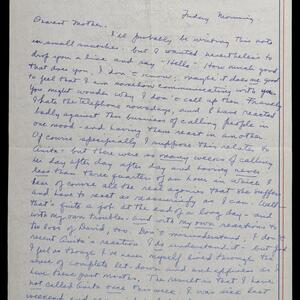 Friday Morning.
Dearest Mother,
I'll probably be writing this note
in small snatches, but I wanted nevertheless to
drop you a line and say "Hello". How much good
that does you, I don't know; maybe it does me good
to feel that I am somehow communicating with you.
You might wonder why I don't call up then. Frankly
I hate the telephone nowadays, and I have reacted
badly against this business of calling people in
one mood - and having them react in another.
Of course - specifically, I suppose this relates to
Anita - but there were so many weeks of calling
her day after day after day and having never
less than three quarters of an hour in which I
hear of course all the real agonies that she suffers
and have to react as reassuringly as I can. Well
that's quite a job at the end of a long day - and
with my own troubles - and with my own reactions to
the loss of David, too. Don't misunderstand, I don't
resent Anita's reaction. I do understand it - but
I feel as though I've never myself lived through the
sense of complete let-down and unhappiness as I
have these past months. The result is that I have
not called Anita once this week. I was sick last
weekend and